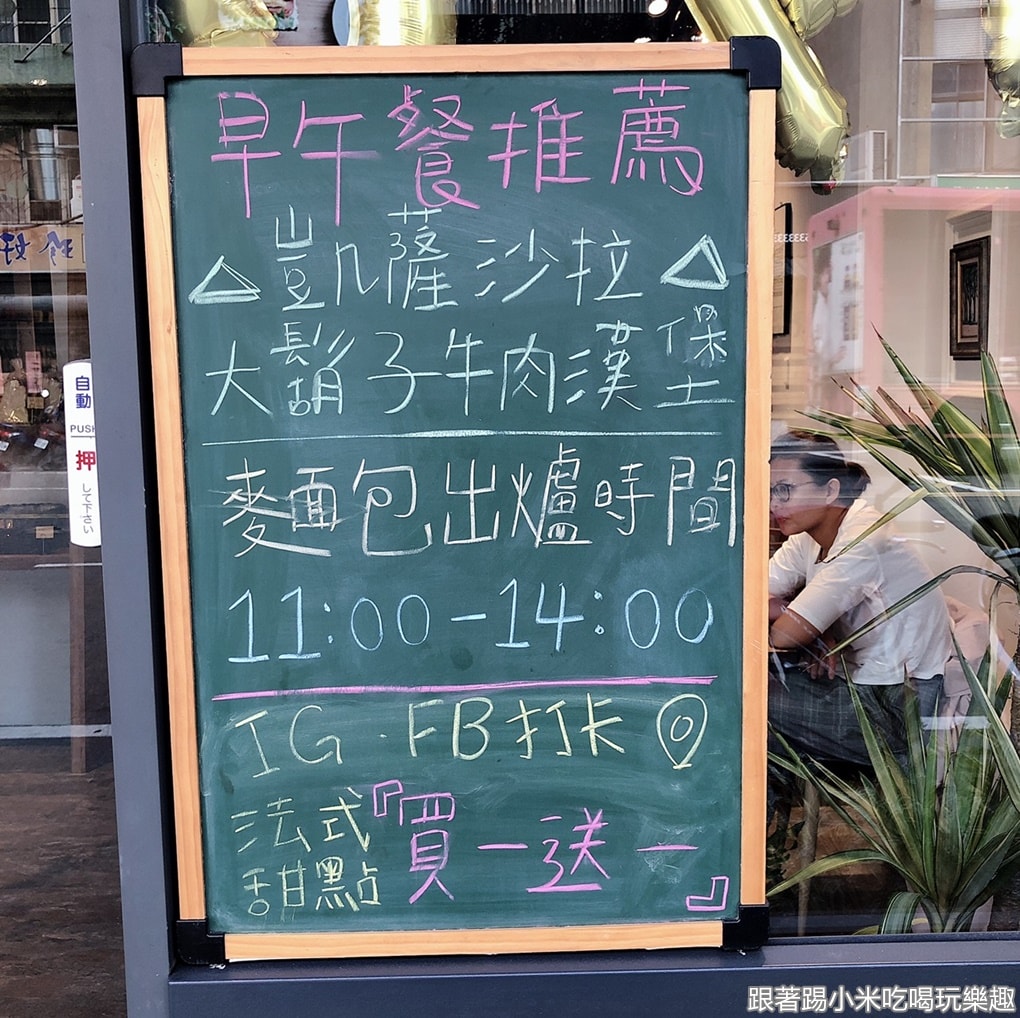 早午餐推薦
△凱薩沙拉△
大鬍子牛肉漢堡
麥面包出爐時間
11:00-14:00
IG·FB打卡
法式甜點『買一送一』
自動
PUSH
押
して下さい
跟著踢小米吃喝玩樂趣